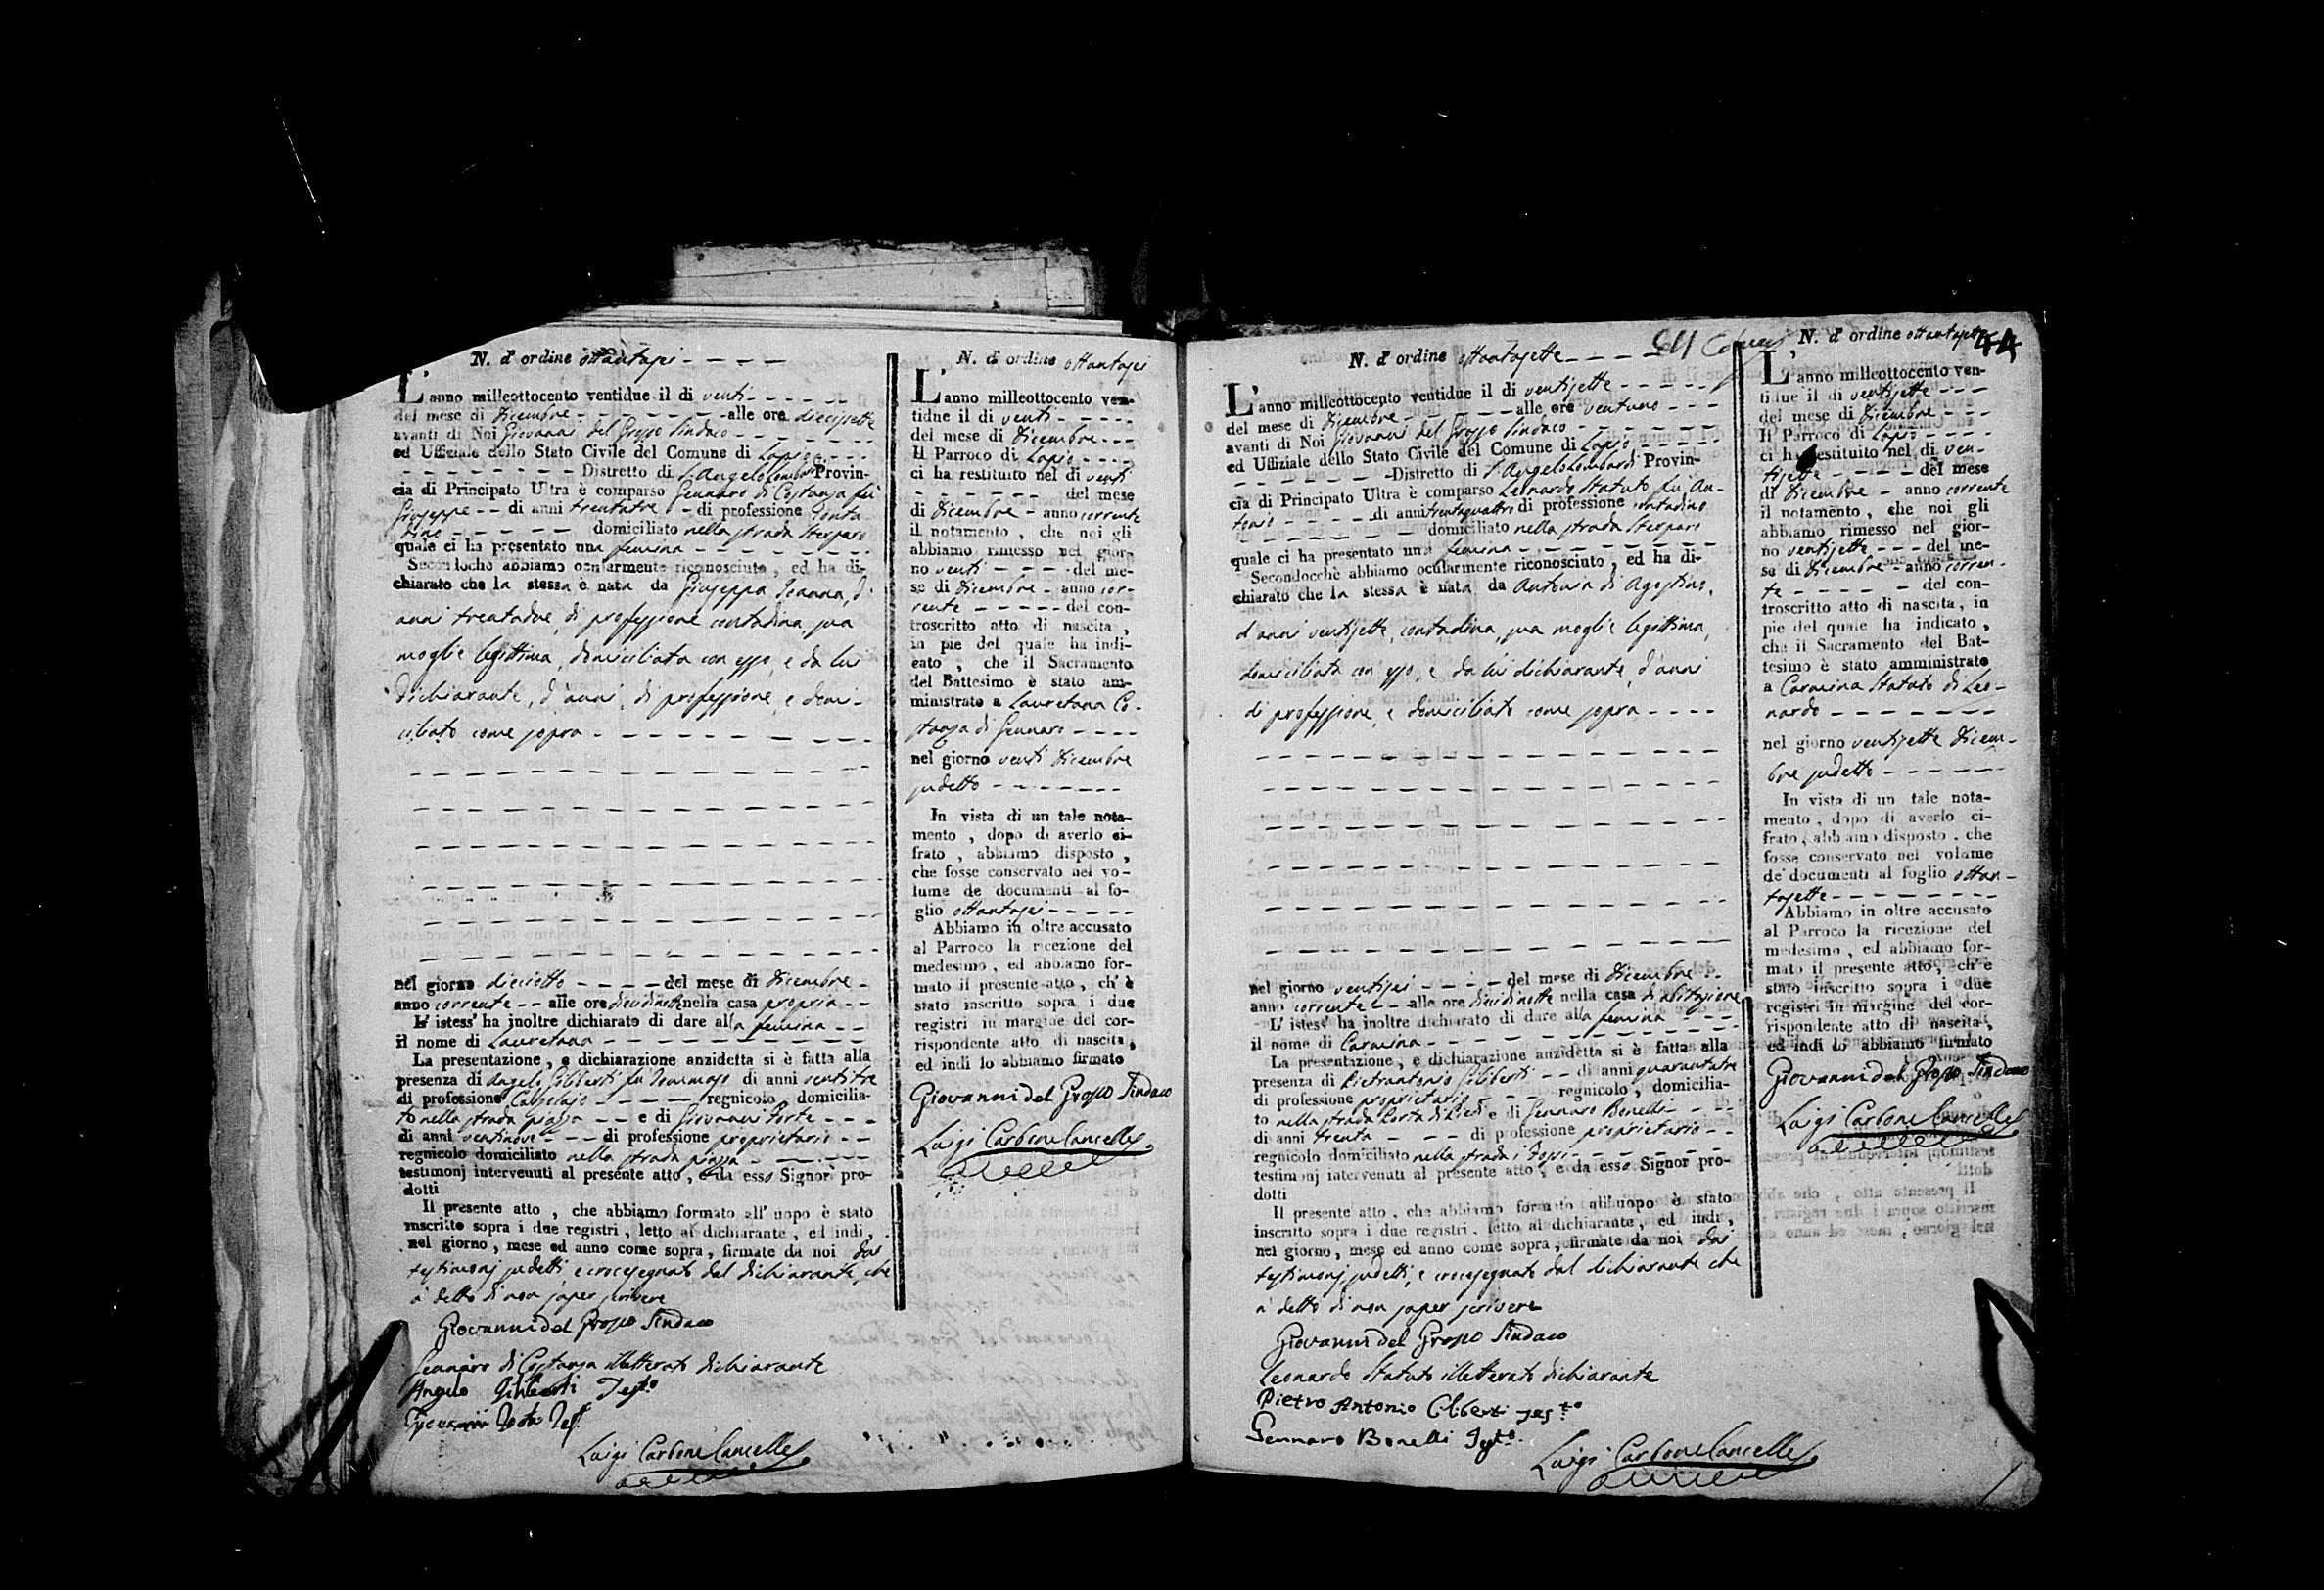 N. d' ordine ottantasei
L'anno milleottocento ventidue il di venti
del mese di Dicembre alle ore diecisette
avanti di Noi Giovanni del Grosso Sindaco
ed Uffiziale dello Stato Civile del Comune di Lapio
Distretto di S. Angelo Lombardi Provin-
cia di Principato Ultra è comparso Gennaro di Costanza fu
Giuseppe di anni trentatre di professione Conta-
dino domiciliato nella strada Sterparo
quale ci ha presentato una femina
Secondochè abbiamo ocularmente riconosciuto, ed ha di-
chiarato che la stessa è nata da Giuseppa Ioanna, d'
anni trentadue, di professione contadina, sua
moglie legittima, domiciliata con esso, e da lui
dichiarante, d'anni, di professione, e domi-
ciliato come sopra
nel giorno dieciotto del mese di Dicembre
anno corrente alle ore diecidinotte nella casa propria
L' istess' ha inoltre dichiarato di dare alla femina
il nome di Lauretana
La presentazione, e dichiarazione anzidetta si è fatta alla
presenza di Angelo Ciliberti fu Tommaso di anni ventitre
di professione regnicolo, domicilia-
to nella strada piazza e di Giovanni Forte
di anni ventinove di professione proprietario
regnicolo domiciliato nella strada piazza
testimonj intervenuti al presente atto, e da esso Signor pro-
dotti
Il presente atto, che abbiamo formato all' uopo è stato
inscritto sopra i due registri, letto al dichiarante, ed indi,
nel giorno, mese ed anno come sopra, firmate da noi dai
testimonj sudetti, e crocesegnato dal dichiarante, che
à detto di non saper scrivere
Giovanni del Grosso Sindaco
Gennaro di Costanza illetterato dichiarante
Angelo Ciliberti Testo
Giovanni Forte Tes.
Luigi Carbone Cancelle
N. d' ordine ottantasei
L'anno milleottocento ven-
tidue il di venti
del mese di Dicembre
Il Parroco di Lapio
ci ha restituito nel di venti
del mese
di Dicembre anno corrente
il notamento, che noi gli
abbiamo rimesso nel gior-
no venti del me-
se di Dicembre anno cor-
rente del con-
troscritto atto di nascita,
in pie del quale ha indi-
cato, che il Sacramento
del Battesimo è stato am-
ministrato a Lauretana Co-
stanza di Gennaro
nel giorno venti Dicembre
sudetto
In vista di un tale nota-
mento, dopo di averlo ci-
frato, abbiamo disposto,
che fosse conservato nel vo-
lume de documenti al fo-
glio ottantasei
Abbiamo in oltre accusato
al Parroco la ricezione del
medesimo, ed abbiamo for-
mato il presente atto, ch' è
stato inscritto sopra i due
registri in margine del cor-
rispondente atto di nascita,
ed indi lo abbiamo firmato
Giovanni del Grosso Sindaco
Luigi Carbone Cancelle
N. d' ordine ottantasette
L'anno milleottocento ventidue il di ventisette
del mese di Dicembre alle ore ventuno
avanti di Noi Giovanni del Grosso Sindaco
ed Uffiziale dello Stato Civile del Comune di Lapio
Distretto di S. Angelo Lombardi Provin-
cia di Principato Ultra è comparso Leonardo Statuto fu An-
tonio di anni trentaquattro di professione contadino
domiciliato nella strada Sterparo
quale ci ha presentato una femina
Secondocchè abbiamo ocularmente riconosciuto, ed ha di-
chiarato che la stessa è nata da Antonia di Agostino,
d'anni ventisette, contadina, sua moglie legittima,
domiciliata con esso, e da lui dichiarante, d'anni
di professione, e domiciliato come sopra
nel giorno ventisei del mese di Dicembre
anno corrente alle ore diecidinotte nella casa di abitazione
L' istess' ha inoltre dichiarato di dare alla femina
il nome di Carmina
La presentazione, e dichiarazione anzidetta si è fatta alla
presenza di Pietrantonio Ciliberti di anni quarantatre
di professione proprietario regnicolo, domicilia-
to nella strada Porta di e di Gennaro Bonelli
di anni trenta di professione proprietario
regnicolo domiciliato nella strada i Fossi
testimonj intervenuti al presente atto, e da esso Signor pro-
dotti
Il presente atto, che abbiamo formato all'uopo è stato
inscritto sopra i due registri, letto al dichiarante, ed indi,
nel giorno, mese ed anno come sopra, firmate da noi dai
testimonj sudetti, e crocesegnato dal dichiarante che
à detto di non saper scrivere
Giovanni del Grosso Sindaco
Leonardo Statuto illetterato dichiarante
Pietro Antonio Ciliberti Testo
Gennaro Bonelli Testo
Luigi Carbone Cancelle
N. d' ordine ottantasette
44
L'anno milleottocento ven-
tidue il di ventisette
del mese di Dicembre
Il Parroco di Lapio
ci ha restituito nel di ven-
tisette del mese
di Dicembre anno corrente
il notamento, che noi gli
abbiamo rimesso nel gior-
no ventisette del me-
se di Dicembre anno corren-
te del con-
troscritto atto di nascita, in
pie del quale ha indicato,
che il Sacramento del Bat-
tesimo è stato amministrato
a Carmina Statuto di Leo-
nardo
nel giorno ventisette Dicem-
bre sudetto
In vista di un tale nota-
mento, dopo di averlo ci-
frato, abbiamo disposto, che
fosse conservato nel volume
de' documenti al foglio ottan-
tasette
Abbiamo in oltre accusato
al Parroco la ricezione del
medesimo, ed abbiamo for-
mato il presente atto, ch'è
stato inscritto sopra i due
registri in margine del cor-
rispondente atto di nascita,
ed indi lo abbiamo firmato
Giovanni del Grosso Sindaco
Luigi Carbone Cancelle